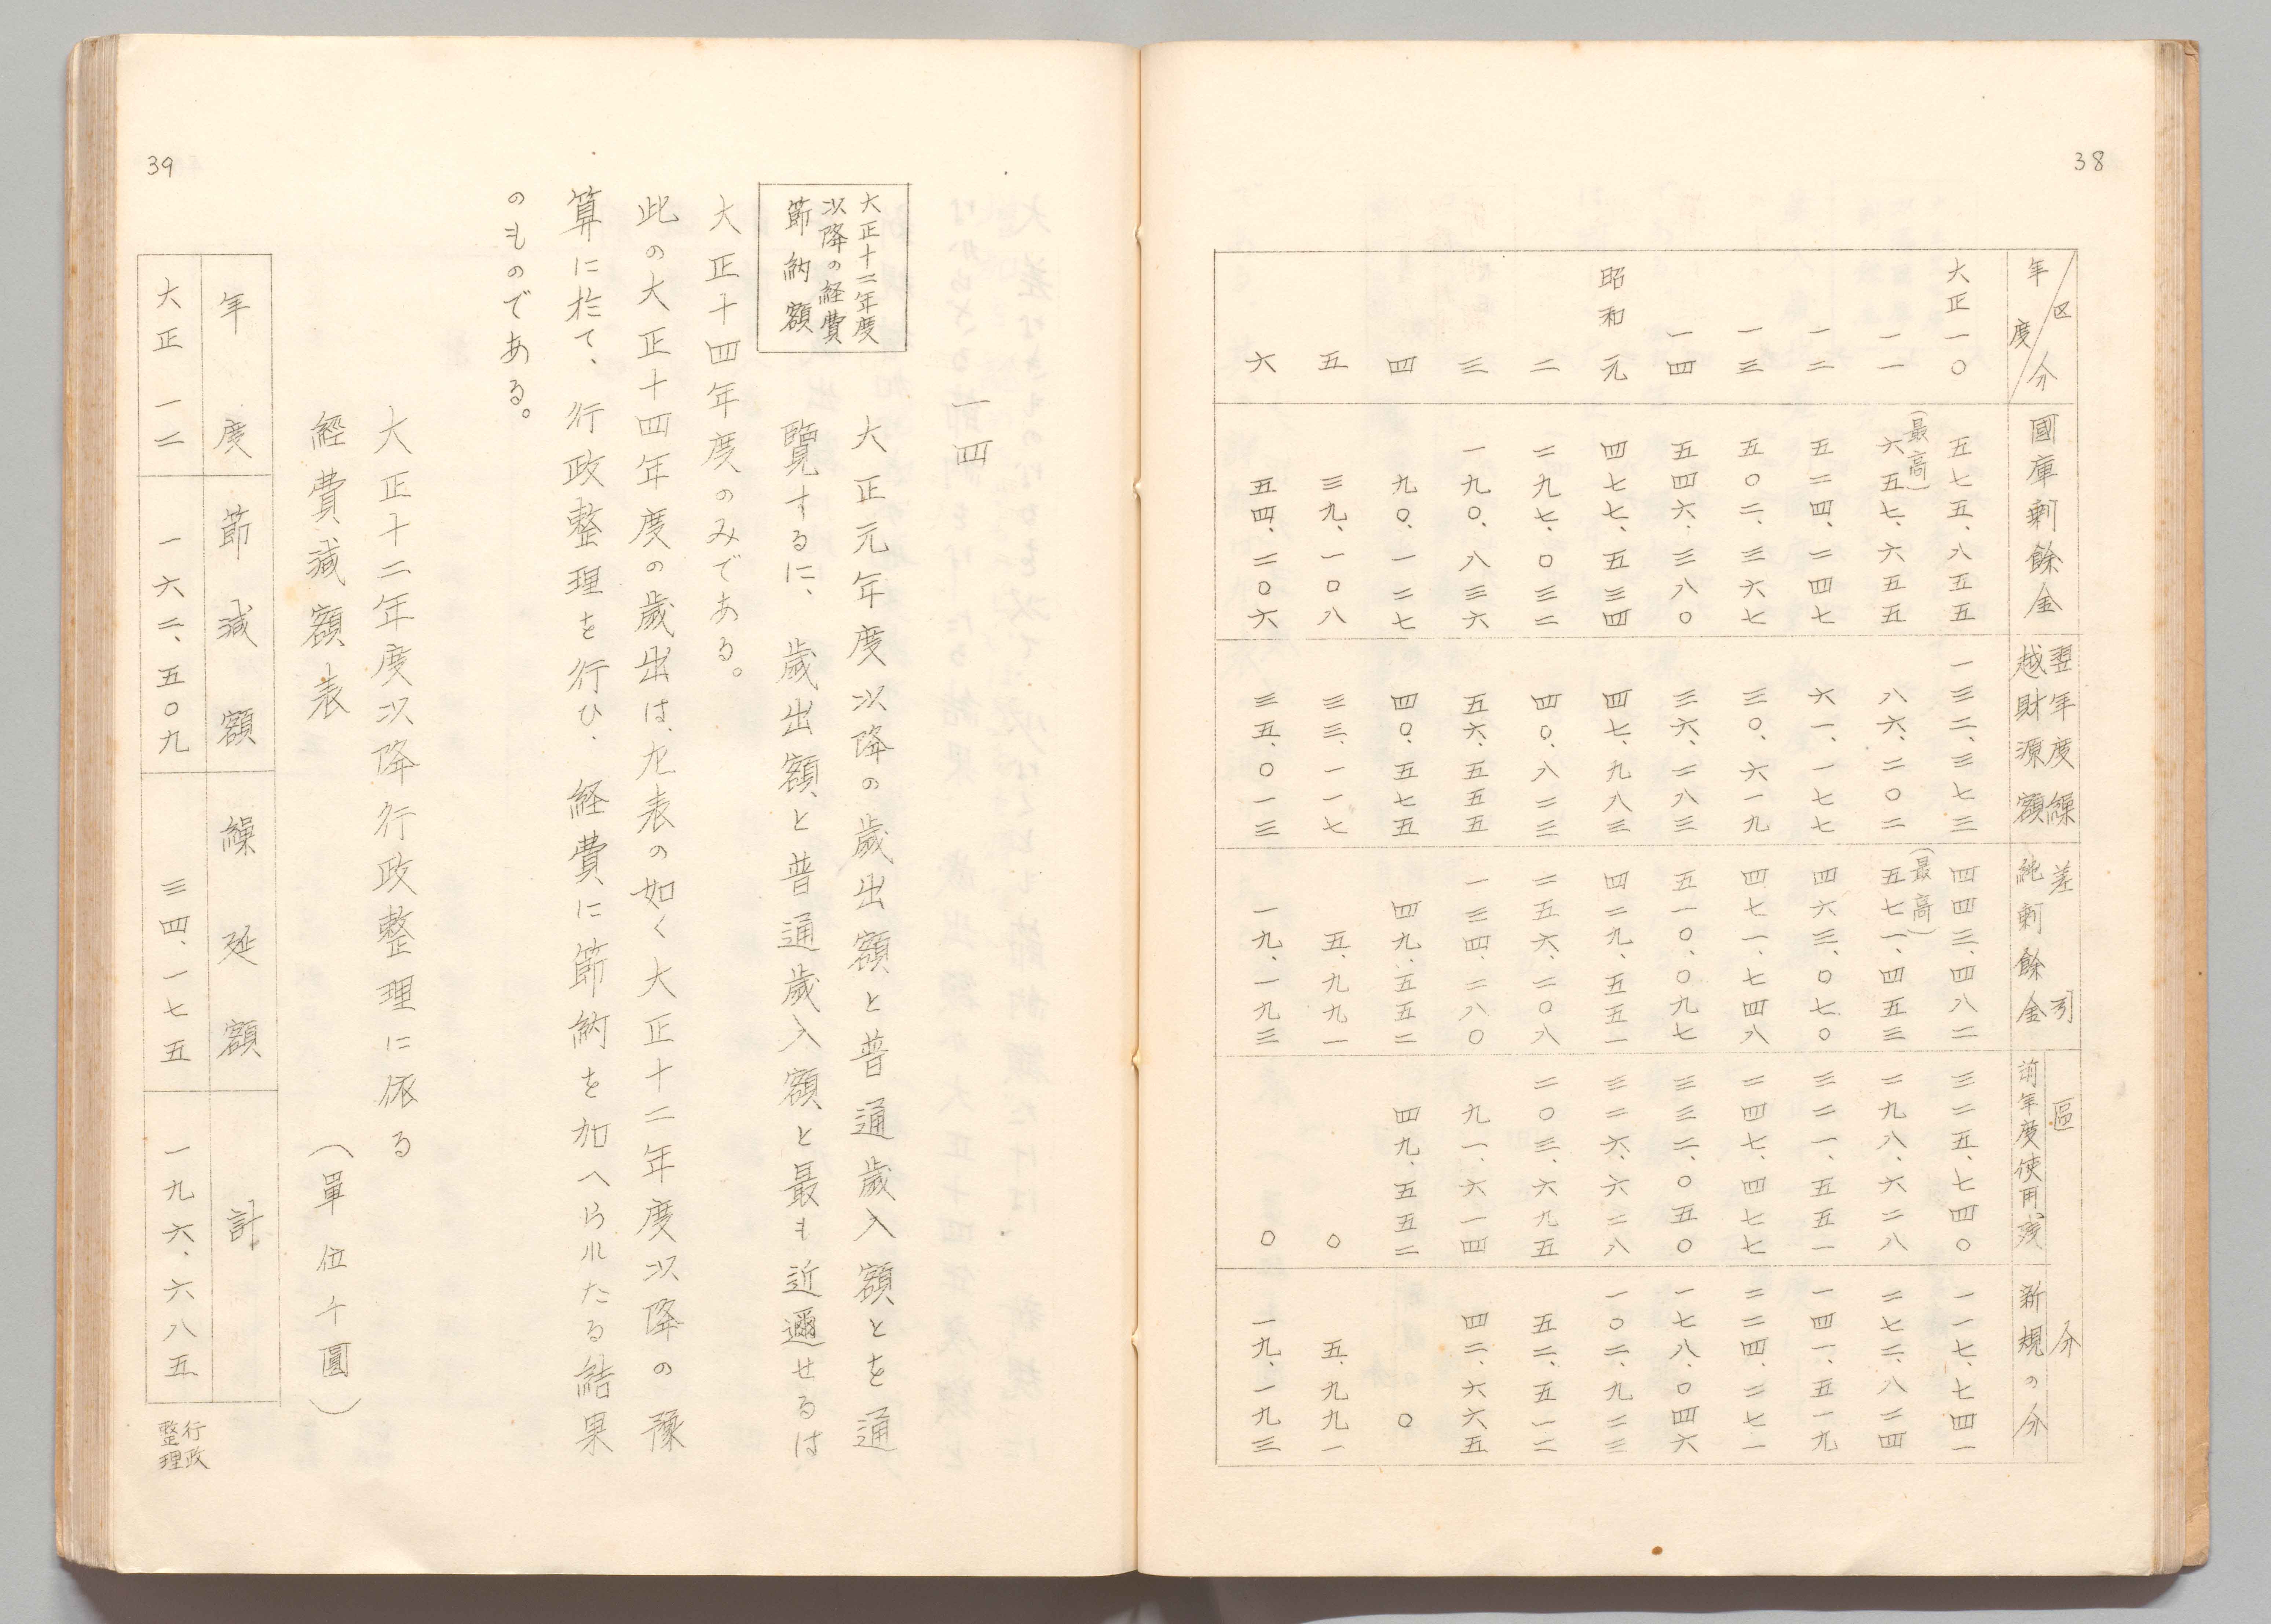 38
年度 区分 國庫剰餘金 翌年度繰越財源額 差引純剰餘金 區分 前年度使用残 新規の分
大正一〇 五七五、八五五 一三二、三七三 四四三、四八二 三二五、七四〇 一一七、七四一
(最高) (最高)
一一 六五七、六五五 八六、二〇二 五七一、四五三 二九八、六二八 二七二、八二四
一二 五二四、二四七 六一、一七七 四六三、〇七〇 三二一、五五一 一四一、五一九
一三 五〇二、三六七 三〇、六一九 四七一、七四八 二四七、四七七 二二四、二七一
一四 五四六、三八〇 三六、二八三 五一〇、〇九七 三三二、〇五〇 一七八、〇四六
昭和元 四七七、五三四 四七、九八三 四二九、五五一 三二六、六二八 一〇二、九二三
二 二九七、〇三二 四〇、八二三 二五六、二〇八 二〇三、六九五 五二、五一二
三 一九〇、八三六 五六、五五五 一三四、二八〇 九一、六一四 四二、六六五
四 九〇、一二七 四〇、五七五 四九、五五二 四九、五五二 〇
五 三九、一〇八 三三、一一七 五、九九一 〇 五、九九一
六 五四、二〇六 三五、〇一三 一九、一九三 〇 一九、一九三
39
一四
大正十二年度
以降の経費
節納額
大正元年度以降の歳出額と普通歳入額とを通
覽するに、歳出額と普通歳入額と最も近邇せるは
大正十四年度のみである。
此の大正十四年度の歳出は、左表の如く大正十二年度以降の豫
算に於て、行政整理を行ひ、経費に節納を加へられたる結果
のものである。
大正十二年度以降行政整理に依る
經費減額表
(單位千圓)
年度 節減額 繰延額 計
大正一二 一六二、五〇九 三四、一七五 一九六、六八五
行政
整理